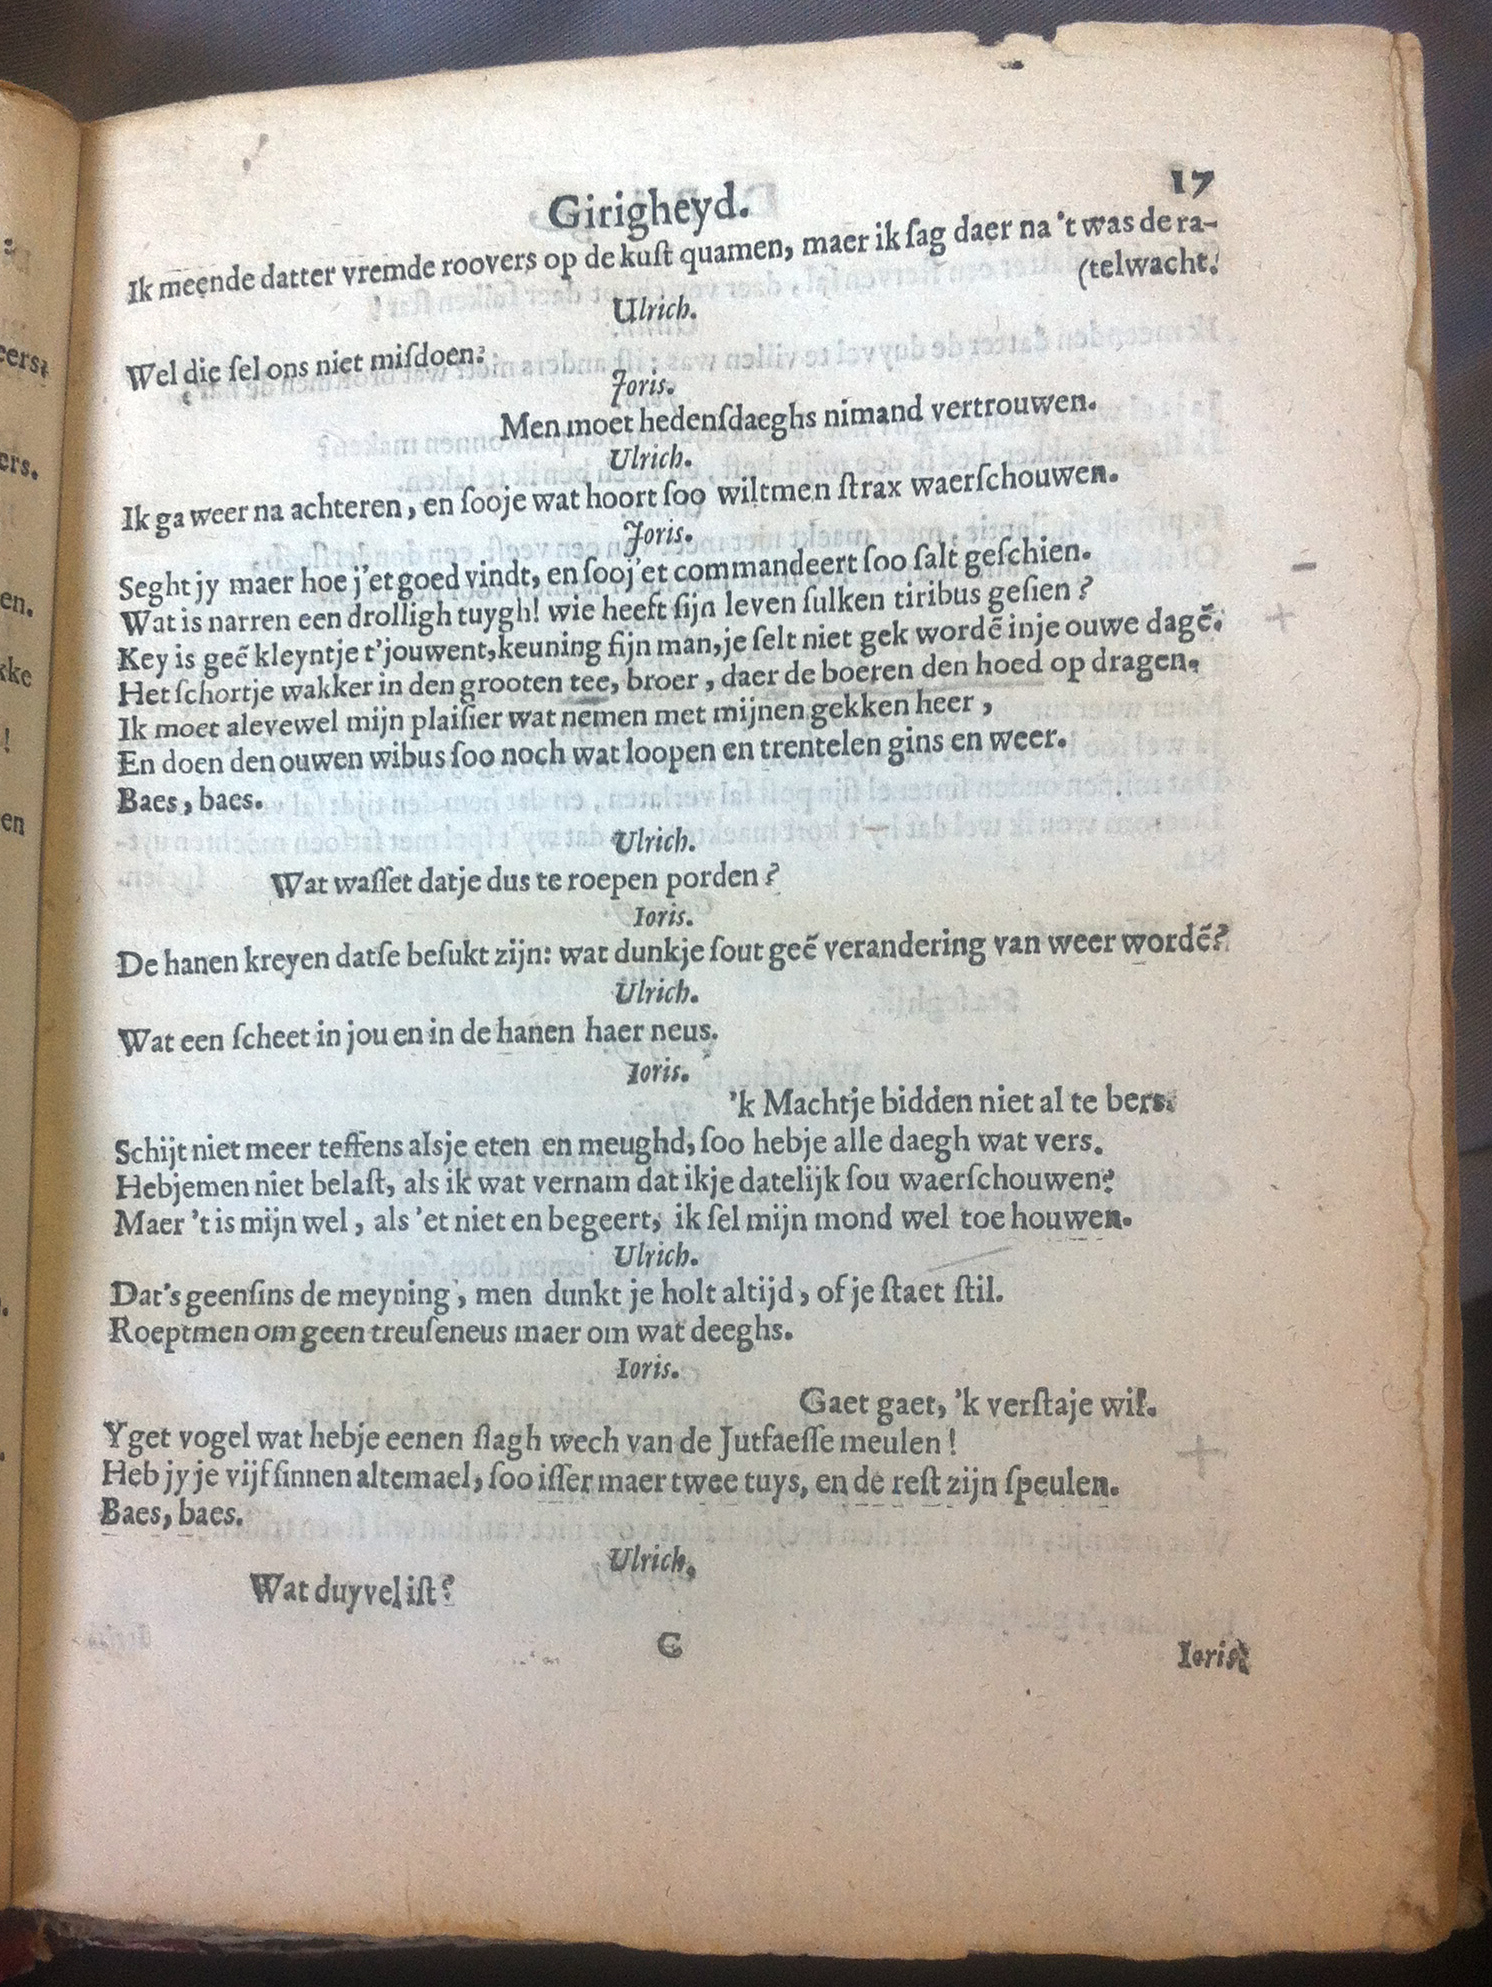 Girigheyd. 17
Ik meende datter vremde roovers op de kuſt quamen, maer ik ſag daer na 't was de ra-
(telwacht.
Ulrich.
Wel die ſel ons niet miſdoen?
Joris.
Men moet hedenſdaeghs nimand vertrouwen.
Ulrich.
Ik ga weer na achteren, en ſooje wat hoort ſoo wiltmen ſtrax waerſchouwen.
Joris.
Seght jy maer hoe j'et goed vindt, en ſooj'et commandeert ſoo ſalt geſchien.
Wat is narren een drolligh tuygh! wie heeft ſijn leven ſulken tiribus geſien?
Key is geẽ kleyntje t'jouwent, keuning ſijn man, je ſelt niet gek wordẽ in je ouwe dagẽ.
Het ſchortje wakker in den grooten tee, broer, daer de boeren den hoed op dragen.
Ik moet alevewel mijn plaiſier wat nemen met mijnen gekken heer,
En doen den ouwen wibus ſoo noch wat loopen en trentelen gins en weer.
Baes, baes.
Ulrich.
Wat waſſet datje dus te roepen porden?
Ioris.
De hanen kreyen datſe beſukt zijn: wat dunkje ſout geẽ verandering van weer wordẽ?
Ulrich.
Wat een ſcheet in jou en in de hanen haer neus.
Ioris.
'k Machtje bidden niet al te bers.
Schijt niet meer teffens alsje eten en meughd, ſoo hebje alle daegh wat vers.
Hebjemen niet belaſt, als ik wat vernam dat ikje datelijk ſou waerſchouwen?
Maer 't is mijn wel, als 'et niet en begeert, ik ſel mijn mond wel toe houwen.
Ulrich.
Dat's geenſins de meyning, men dunkt je holt altijd, of je ſtaet ſtil.
Roeptmen om geen treuſeneus maer om wat deeghs.
Ioris.
Gaet gaet, 'k verſtaje wil.
Yget vogel wat hebje eenen ſlagh wech van de Jutfaeſſe meulen!
Heb jy je vijf ſinnen altemael, ſoo iſſer maer twee tuys, en de reſt zijn ſpeulen.
Baes, baes.
Ulrich.
Wat duyvel iſt?
C Ioris.